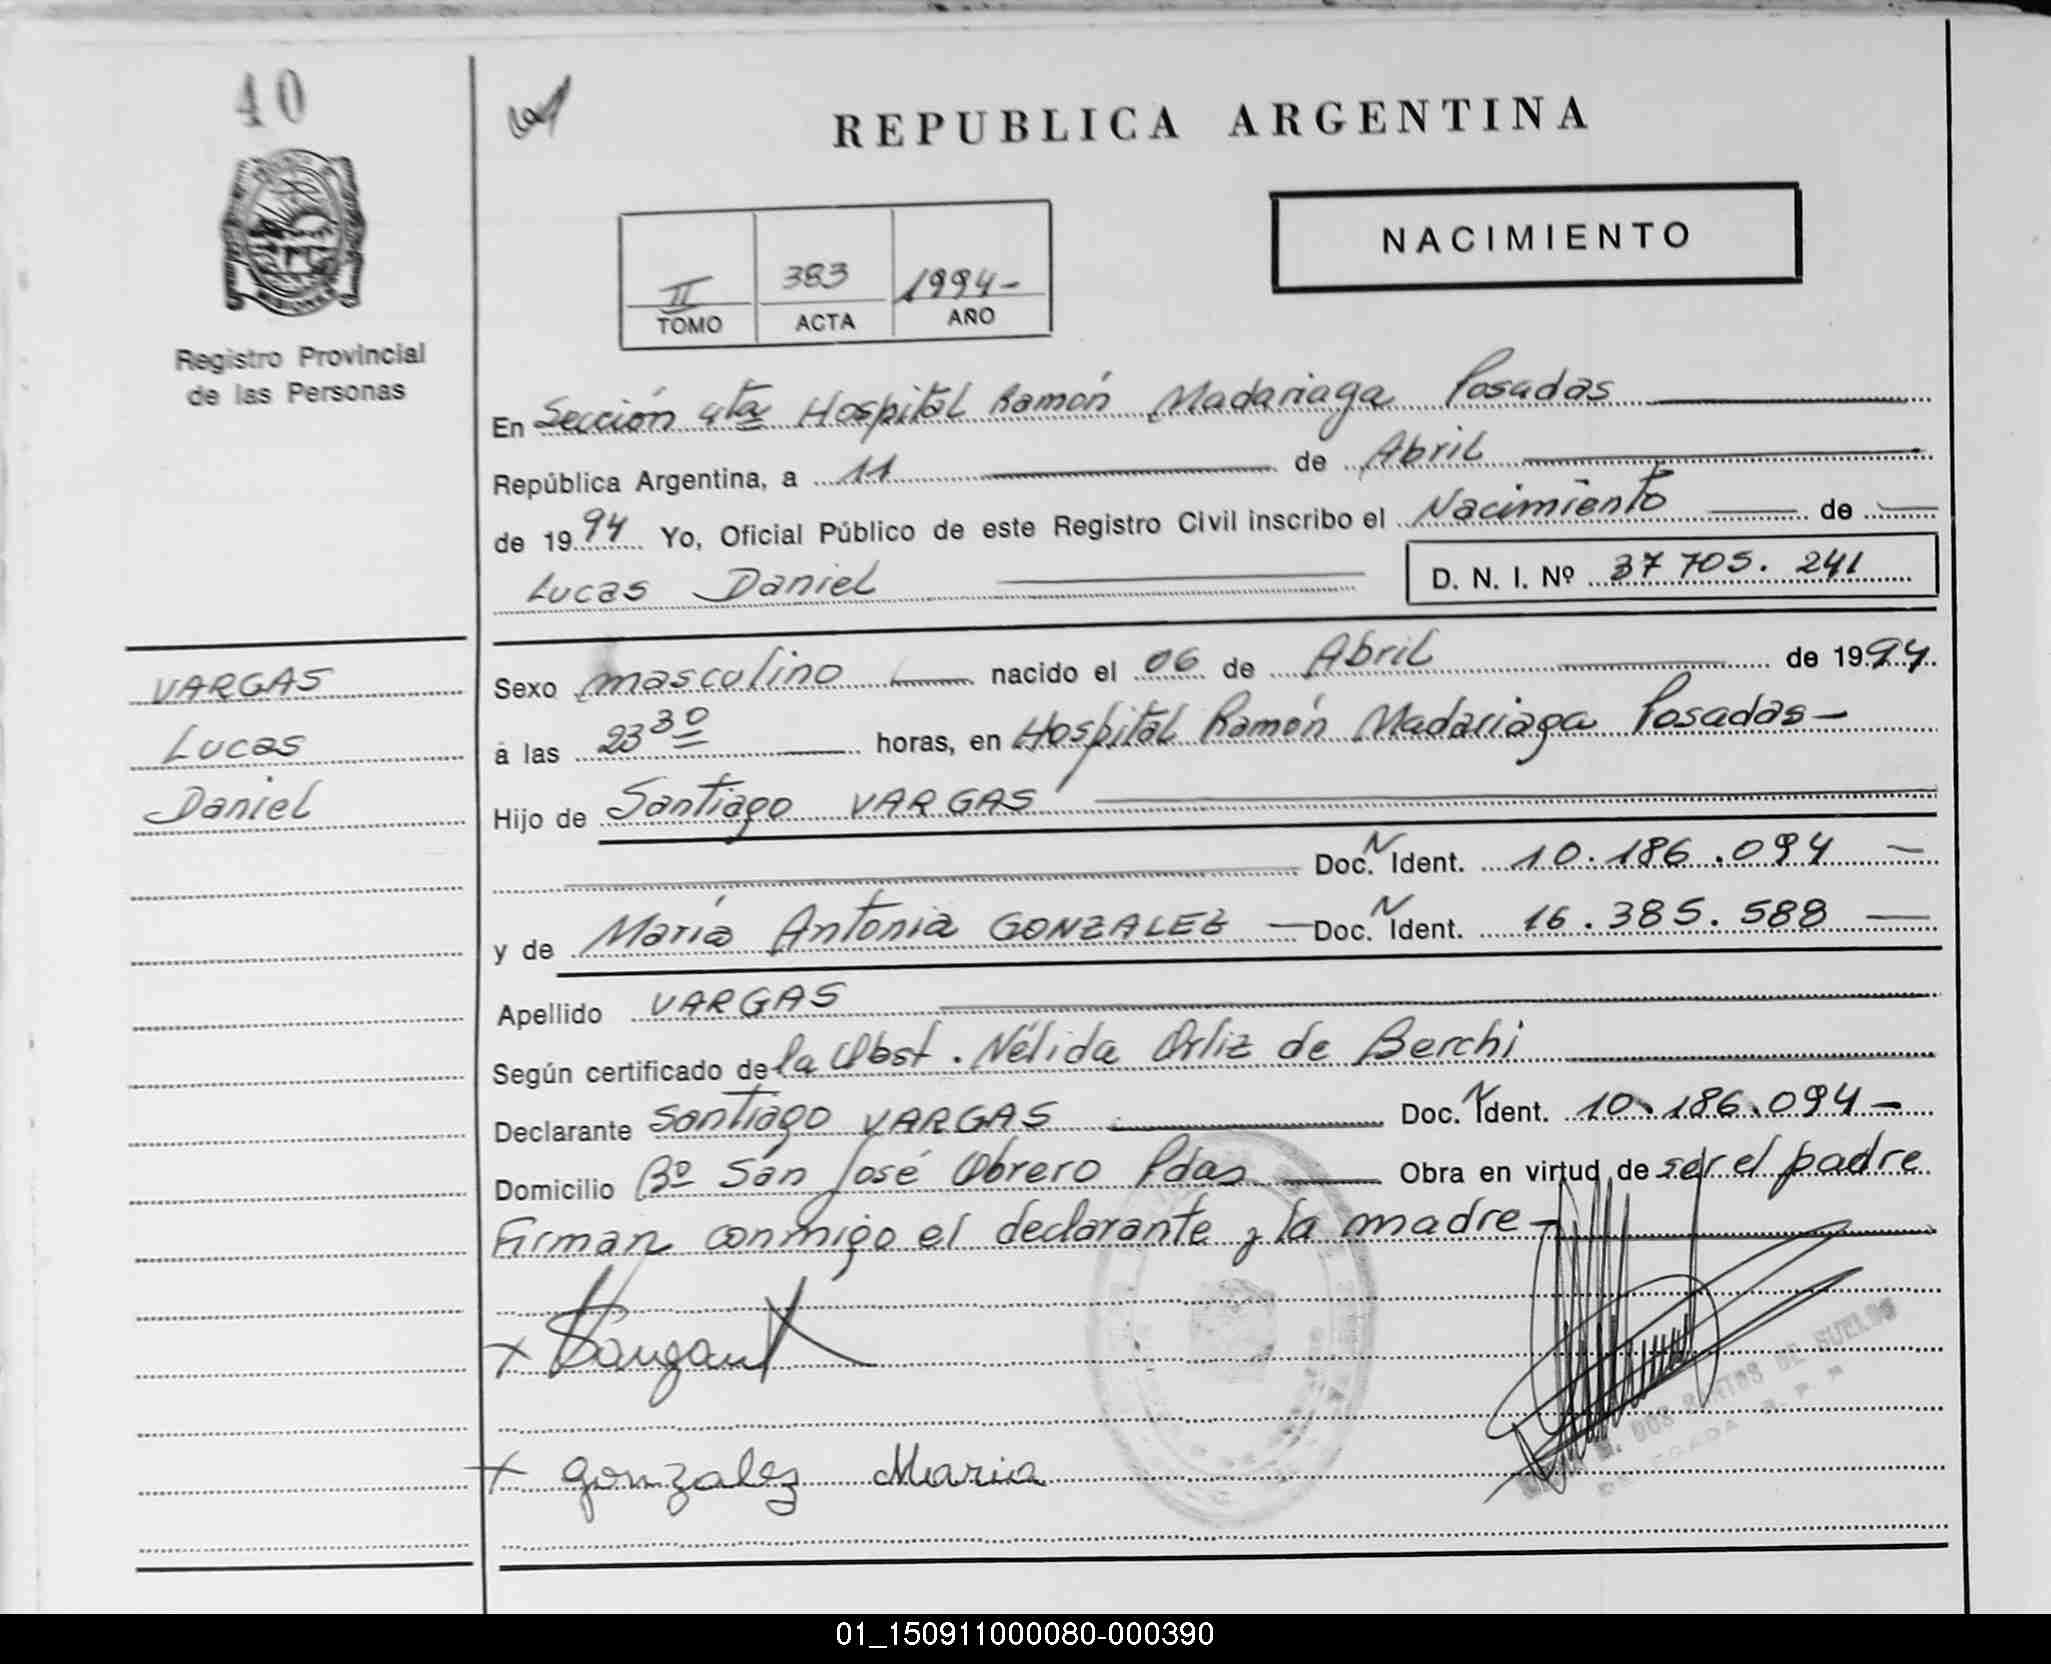 40
REPUBLICA ARGENTINA
NACIMIENTO
II 383 1994-
TOMO ACTA AÑO
Registro Provincial
de las Personas
En Sección 4ta Hospital Ramón Madariaga Posadas
República Argentina, a 11 de Abril
de 1994 Yo, Oficial Público de este Registro Civil inscribo el Nacimiento de
Lucas Daniel D. N. I. Nº 37 705. 241
VARGAS
Lucas
Daniel
Sexo masculino nacido el 06 de Abril de 1994.
a las 23 30 horas, en Hospital Ramón Madariaga Posadas-
Hijo de Santiago VARGAS
Doc. N Ident. 10.186.094
y de María Antonia GONZALEZ Doc. N Ident. 16.385.588
Apellido VARGAS
Según certificado de la Obst. Nélida Ortiz de Berchi
Declarante Santiago VARGAS Doc. N Ident. 10.186.094-
Domicilio Bº San José Obrero Pdas Obra en virtud de ser el padre
Firman conmigo el declarante y la madre-
x
DOS SANTOS DE SUELOS
x Gonzalez Maria
01_150911000080-000390